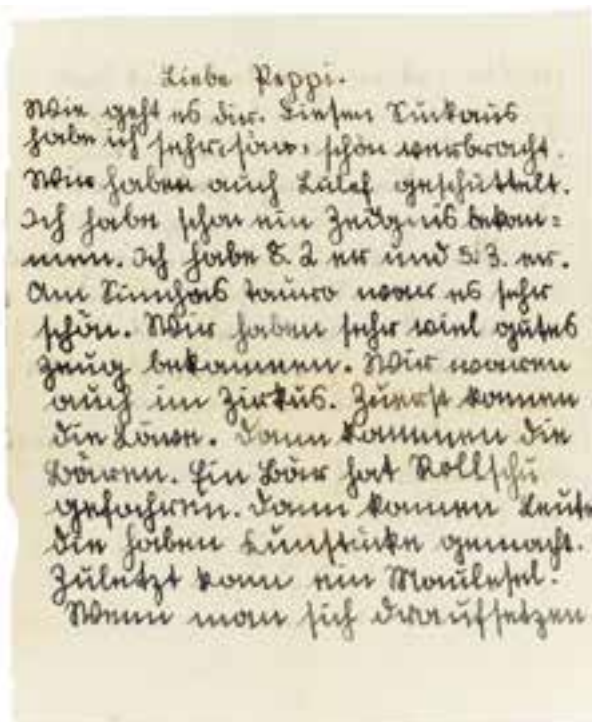 Liebe Peppi.
Wie geht es dir. Diesen Suckaus
habe ich sehr, sehr, schön verbracht.
Wir haben auch Lulef geschüttelt.
Ich habe schon ein Zeugnis bekom=
men. Ich habe 8. 2 er und 5. 3. er.
Am Simchas tauro war es sehr
schön. Wir haben sehr viel gutes
zeug bekommen. Wir waren
auch im Zirkus. Zuerst kamen
die Löwen. Dann kammen die
Bären. Ein Bär hat Rollschu
gefahren. Dann kamen Leute
die haben Kunstücke gemacht.
Zuletzt kam ein Maulesel.
Wenn man sich draufsetzen